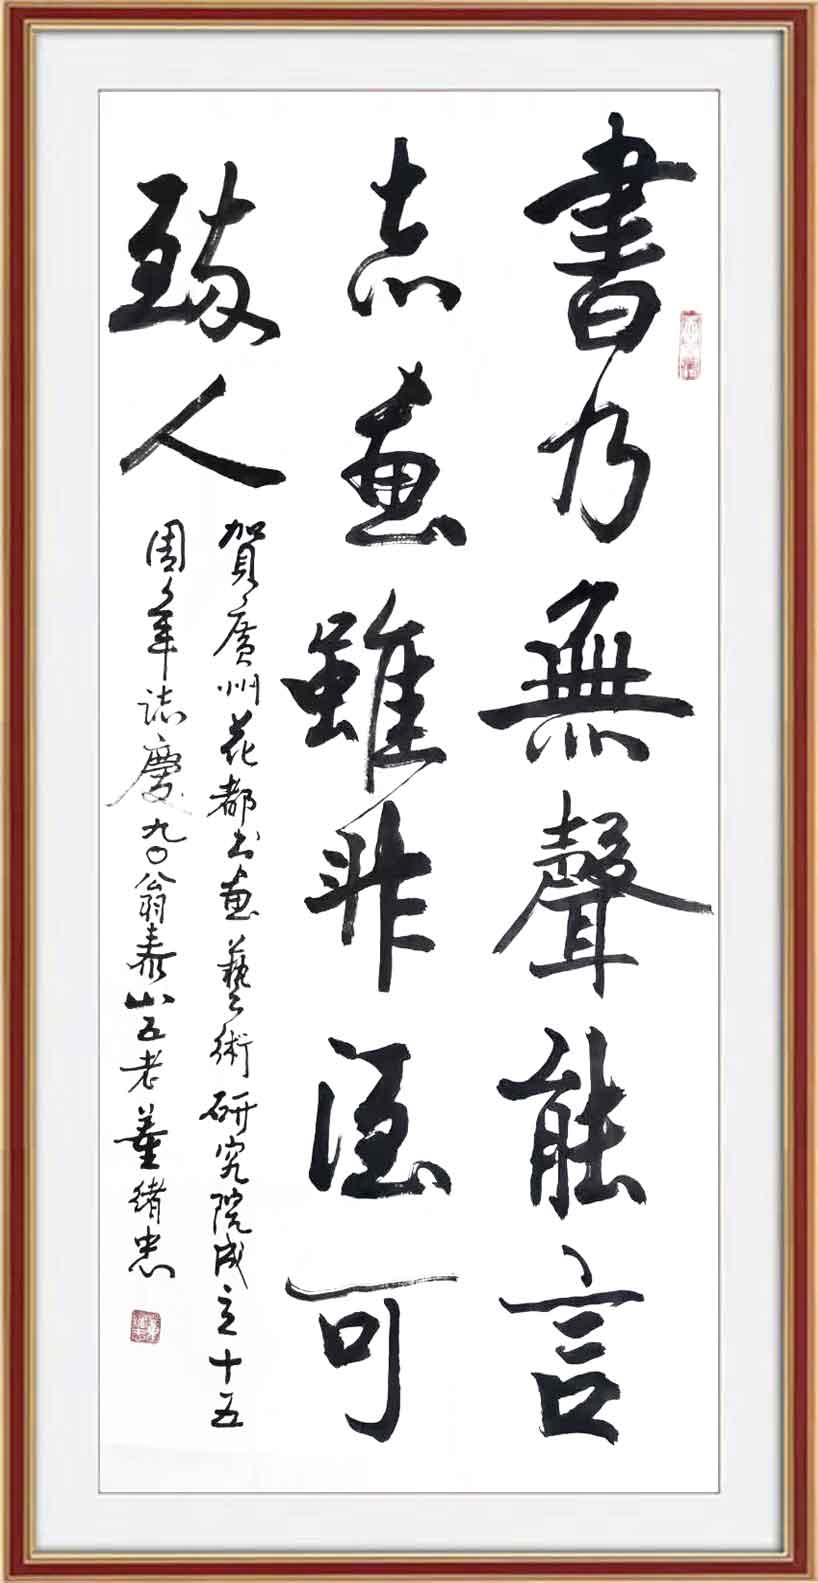 書乃無聲能言
志畫雖非酒可
醉人
賀廣州花都书畫藝術研究院成立十五
周年誌慶九〇翁泰山五老董緒忠